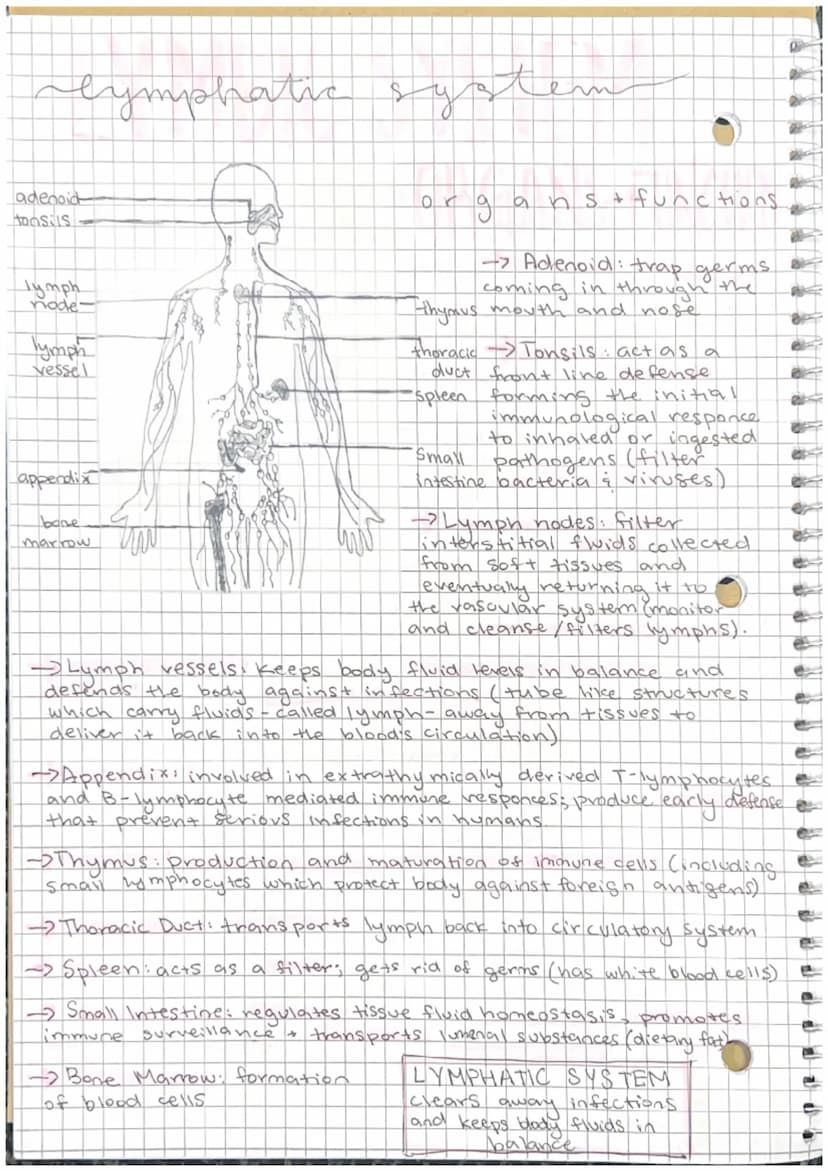 lymphatic system
adenoid
tonsils
lymph
node
lymph
vessel
appendix
bone
marrow
thymus
thoracic
duct
spleen
small
intestine
organs + functions
→ Adenoid: trap germs
coming in through the
mouth and nose
→ Tonsils: act as a
front line defense
forming the initial
immunological responce
to inhaled or ingested
pathogens (filter
bacteria & viruses)
→ Lymph nodes: filter
interstitial fluids collected
from soft tissues and
eventually returning it to
the vascular system (monitor
and cleanse/filters lymphs).
→ Lymph vessels: keeps body fluid levels in balance and
defends the body against infections (tube like structures
which carry fluids - called lymph - away from tissues to
deliver it back into the blood's circulation)
→ Appendix: involved in extrathymically derived T-lymphocytes
and B-lymphocyte mediated immune responces; produce early defense
that prevent serious infections in humans.
→ Thymus: production and maturation of immune cells (including
small lymphocytes which protect body against foreign antigens)
→ Thoracic Duct: transports lymph back into circulatory system
→ Spleen: acts as a filter; gets rid of germs (has white blood cells)
→ Small Intestine: regulates tissue fluid homeostasis, promotes
immune surveillance + transports lumenal substances (dietary fat)
→ Bone Marrow: formation
of blood cells
LYMPHATIC SYSTEM
clears away infections
and keeps body fluids in
balance